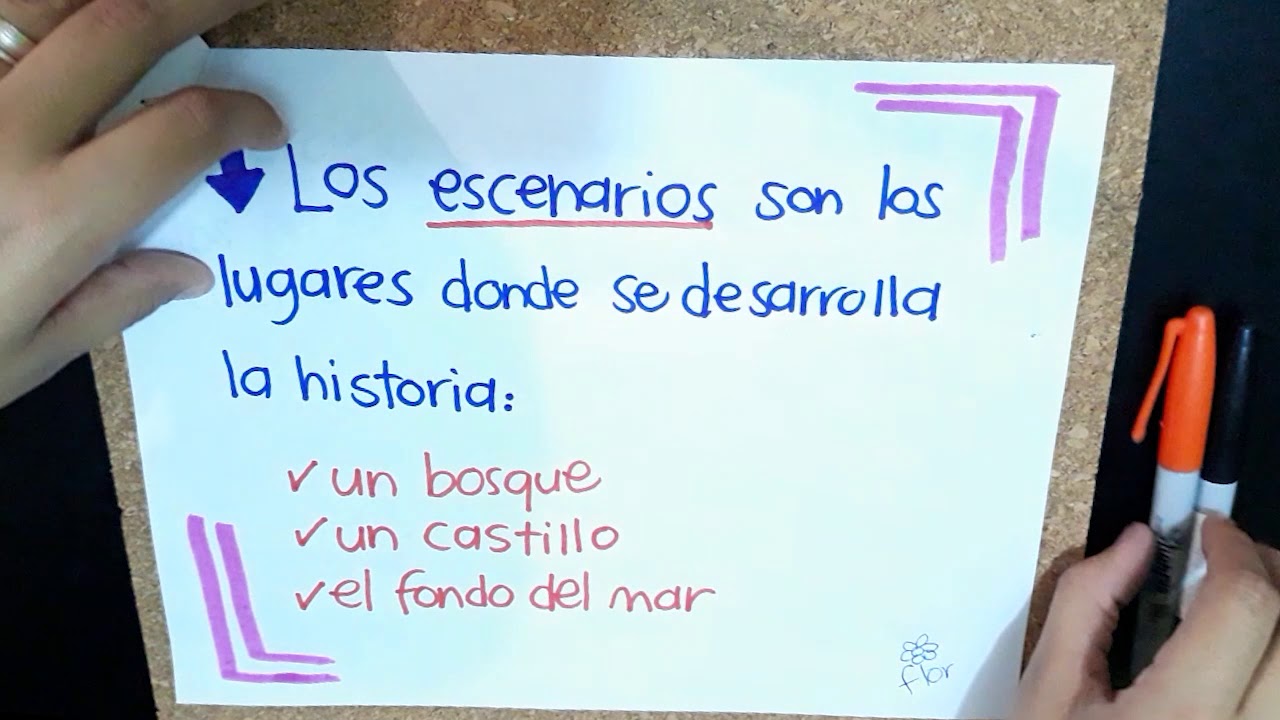 Los escenarios son los
lugares donde se desarrolla
la historia:
✓un bosque
✓un castillo
✓el fondo del mar
flor